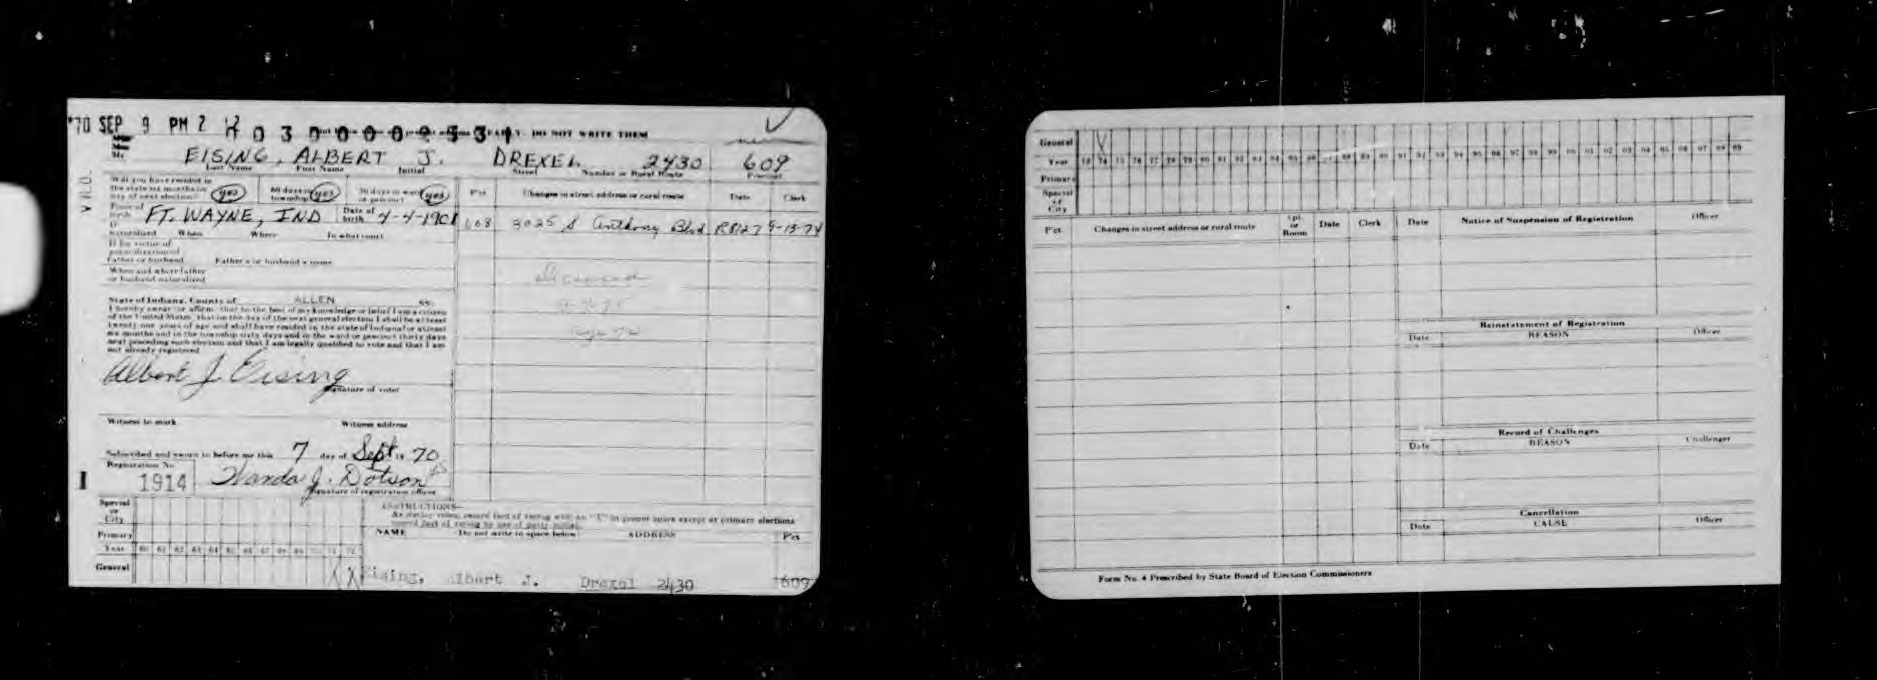 '70 SEP 9 PM 2 12
DO NOT WRITE THEM
EISING, ALBERT J. DREXEL 2430 609
Last Name First Name Initial Street Number or Rural Route Precinct
Will you have resided in
the state six months on
day of next election? yes 60 days in township yes 30 days in ward or precinct yes
Pct Changes in street address or rural route Date Clerk
Place of birth FT. WAYNE, IND Date of birth 4-4-1901
608 3025 S Anthony Blvd 9-15-74
If naturalized When Where In what court
If by virtue of
naturalization of
Father or husband Father's or husband's name
When and where father
or husband naturalized
Deceased
State of Indiana, County of ALLEN ss:
I hereby swear (or affirm) that to the best of my knowledge or belief I am a citizen
of the United States, that on the day of the next general election I shall be at least
twenty-one years of age and shall have resided in the state of Indiana for at least
six months and in the township sixty days and in the ward or precinct thirty days
next preceding such election and that I am legally qualified to vote and that I am
not already registered
Albert J. Eising
Signature of voter
Witness to mark Witness address
Subscribed and sworn to before me this 7 day of Sept 19 70
Registration No.
1914 Wanda J. Dotson
Signature of registration officer
Special
or
City
INSTRUCTIONS—
record fact of voting with an "X" in proper space except at primary elections
record fact of voting by use of party initial.
Primary NAME (Do not write in space below) ADDRESS Pct
Year 60 61 62 63 64 65 66 67 68 69 70 71 72
General Eising, Albert J. Drexel 2430 609
General
Year 73 74 75 76 77 78 79 80 81 82 83 84 85 86 87 88 89 90 91 92 93 94 95 96 97 98 99 00 01 02 03 04 05 06 07 08 09
Primary
Special
or
City
Pct Changes in street address or rural route Apt. or Room Date Clerk Date Notice of Suspension of Registration Officer
Reinstatement of Registration
Date REASON Officer
Record of Challenges
Date REASON Challenger
Cancellation
Date CAUSE Officer
Form No. 4 Prescribed by State Board of Election Commissioners